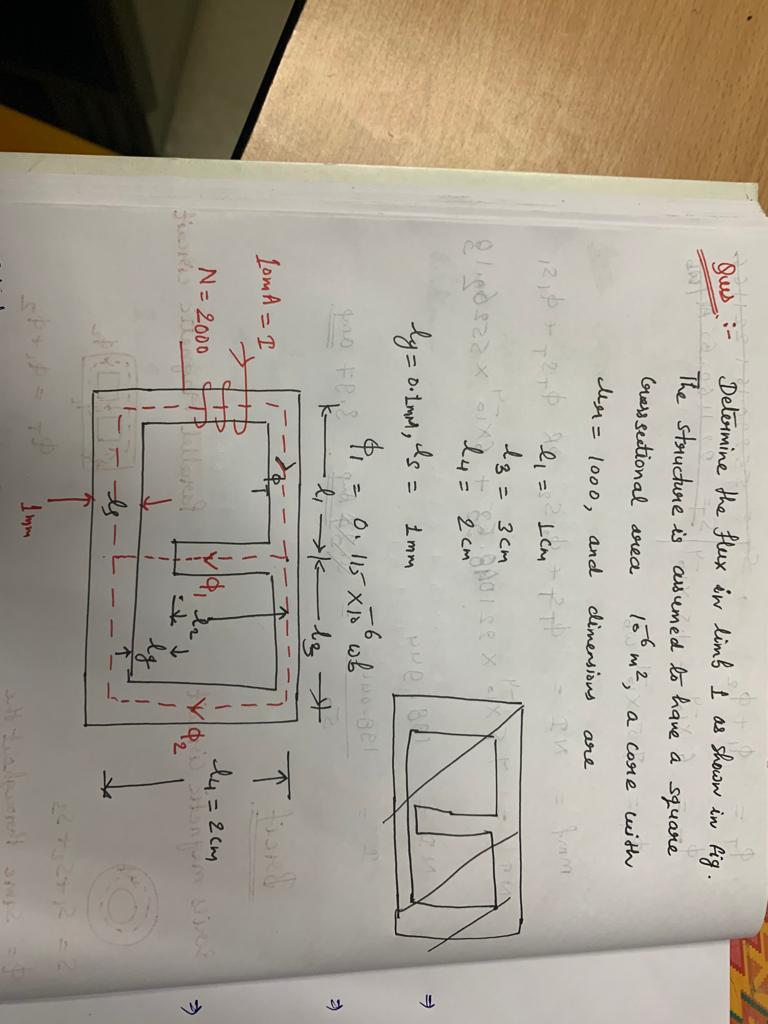 Ques :- Determine the flux in limb 1 as shown in fig.
The structure is assumed to have a square
crosssectional area 10⁻⁶ m², a core with
μr = 1000, and dimensions are
l1 = 1cm
l3 = 3cm
l4 = 2cm
lg = 0.1mm, l5 = 1mm
ϕ1 = 0.115 × 10⁻⁶ wb
l1
l3
10mA = I
N = 2000
ϕT
ϕ1
l2
lg
ϕ2
l4 = 2cm
l5
1mm